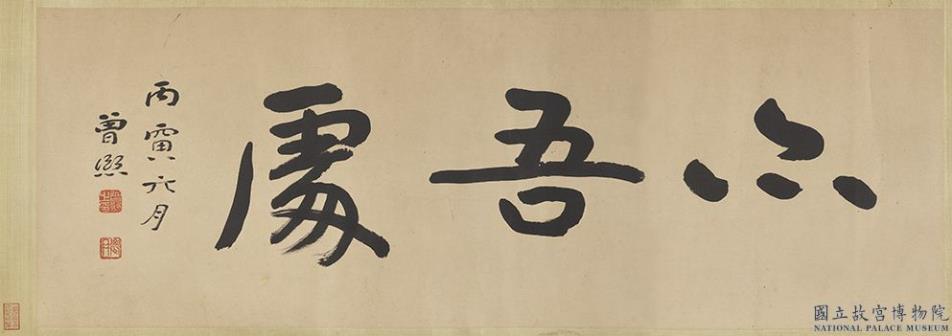 六吾處
丙寅六月
曾熙
國立故宮博物院
NATIONAL PALACE MUSEUM